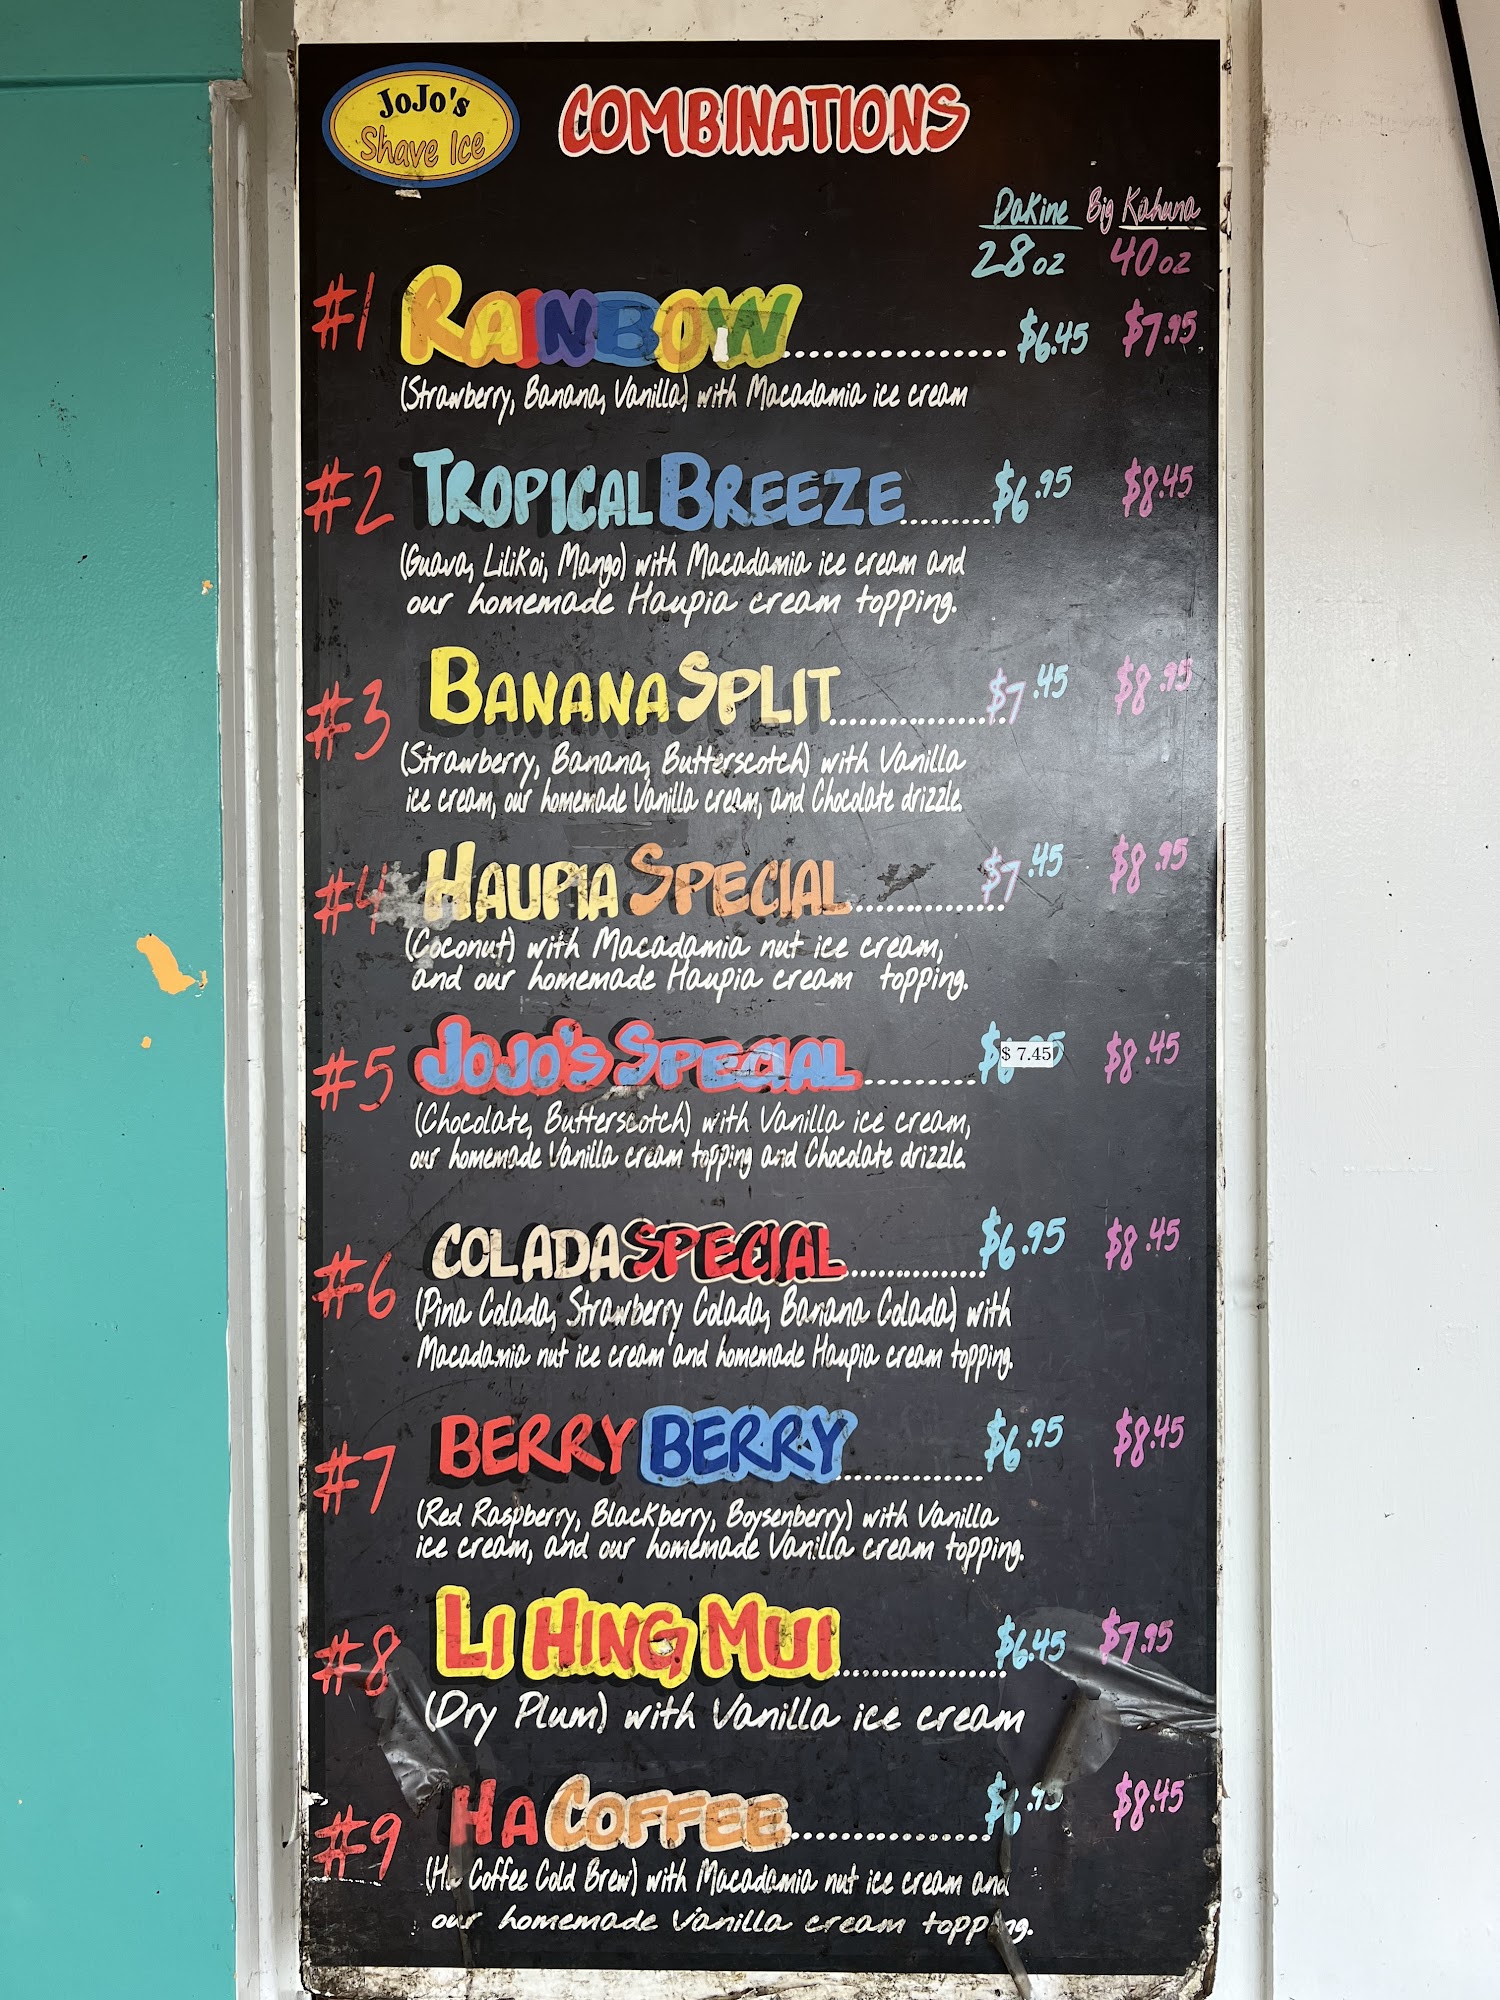 JoJo's
Shave Ice
COMBINATIONS
DaKine Big Kahuna
28oz 40oz
#1 RAINBOW.................... $6.45 $7.95
(Strawberry, Banana, Vanilla) with Macadamia ice cream
#2 TROPICAL BREEZE......... $6.95 $8.45
(Guava, LiliKoi, Mango) with Macadamia ice cream and
our homemade Haupia cream topping.
#3 BANANA SPLIT................ $7.45 $8.95
(Strawberry, Banana, Butterscotch) with Vanilla
ice cream, our homemade Vanilla cream, and Chocolate drizzle.
#4 HAUPIA SPECIAL.............. $7.45 $8.95
(Coconut) with Macadamia nut ice cream,
and our homemade Haupia cream topping.
#5 JOJO'S SPECIAL........... $ 7.45 $8.45
(Chocolate, Butterscotch) with Vanilla ice cream,
our homemade Vanilla cream topping and Chocolate drizzle.
#6 COLADA SPECIAL.............. $6.95 $8.45
(Pina Colada, Strawberry Colada, Banana Colada) with
Macadamia nut ice cream and homemade Haupia cream topping.
#7 BERRY BERRY.............. $6.95 $8.45
(Red Raspberry, Blackberry, Boysenberry) with Vanilla
ice cream, and our homemade Vanilla cream topping.
#8 LI HING MUI................. $6.45 $7.95
(Dry Plum) with Vanilla ice cream
#9 HA COFFEE.................... $6.95 $8.45
(Ha Coffee Cold Brew) with Macadamia nut ice cream and
our homemade Vanilla cream topping.